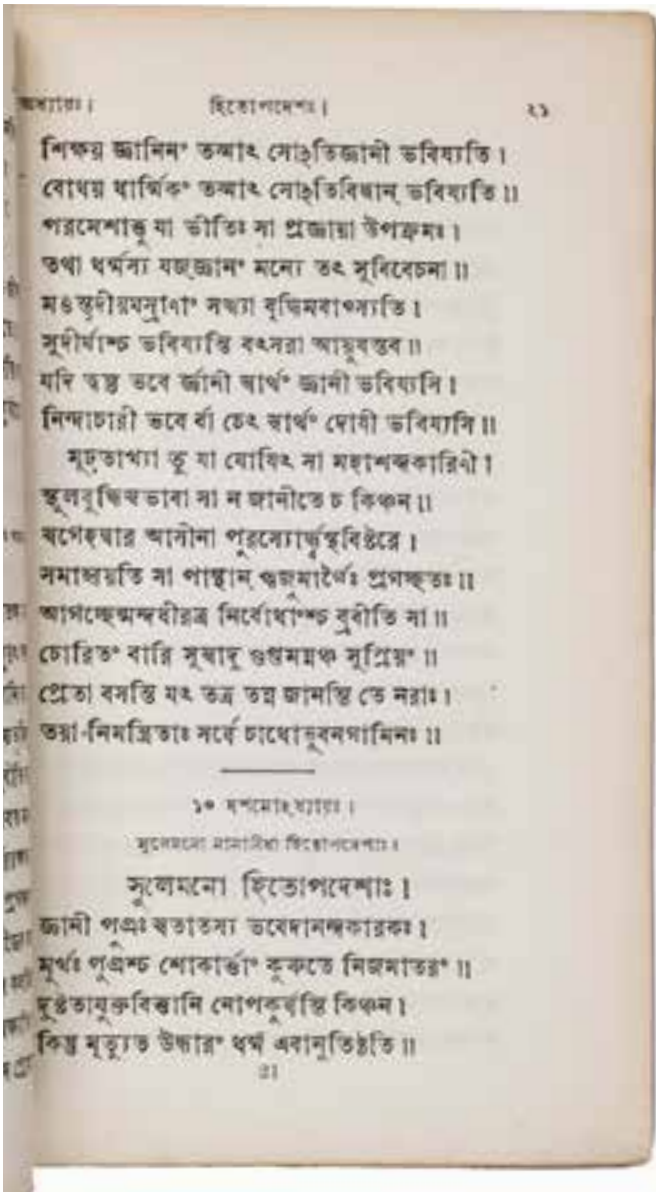 অধ্যায়ঃ। হিতোপদেশঃ। ২১
শিক্ষয় জ্ঞানিনং তস্মাৎ সোঽতিজ্ঞানী ভবিষ্যতি।
বোধয় ধার্ম্মিকং তস্মাৎ সোঽতিবিদ্বান্ ভবিষ্যতি॥
পরমেশাত্তু যা ভীতিঃ সা প্রজ্ঞায়া উপক্রমঃ।
তথা ধর্ম্মস্য যজ্জ্ঞানং মন্যে তৎ সুবিবেচনা॥
মত্তস্ত্বদীয়ঘস্রাণাং সঙ্খ্যা বৃদ্ধিমবাপ্স্যতি।
সুদীর্ঘাশ্চ ভবিষ্যন্তি বৎসরা আয়ুষস্তব॥
যদি ত্বন্তু ভবে র্জ্ঞানী স্বার্থং জ্ঞানী ভবিষ্যসি।
নিন্দাচারী ভবে র্বা চেৎ স্বার্থং দোষী ভবিষ্যসি॥
মূঢ়তাখ্যা তু যা যোষিৎ সা মহাশব্দকারিণী।
স্থূলবুদ্ধিস্বভাবা সা ন জানীতে চ কিঞ্চন॥
স্বগেহদ্বার আসীনা পুরস্যোর্দ্ধ্বস্থবিষ্টরে।
সমাহ্বয়তি সা পান্থান্ ঋজুমার্গৈঃ প্রগচ্ছতঃ॥
আগচ্ছেন্মন্দধীরত্র নির্বোধাংশ্চ ব্রবীতি সা॥
চোরিতং বারি সুস্বাদু গুপ্তমন্নঞ্চ সুপ্রিয়ং॥
প্রেতা বসন্তি যৎ তত্র তন্ন জানন্তি তে নরাঃ।
তয়া নিমন্ত্রিতাঃ সর্ব্বে চাধোভুবনগামিনঃ॥
১০ দশমোঽধ্যায়ঃ।
সুলেমনো নানাবিধা হিতোপদেশাঃ।
সুলেমনো হিতোপদেশাঃ।
জ্ঞানী পুত্রঃ স্বতাতস্য ভবেদানন্দকারকঃ।
মূর্খঃ পুত্রশ্চ শোকার্ত্তাং কুরুতে নিজমাতরং॥
দুষ্টতাযুক্তবিত্তানি নোপকুর্ব্বন্তি কিঞ্চন।
কিন্তু মৃত্যুত উদ্ধারং ধর্ম্ম এবানুতিষ্ঠতি॥